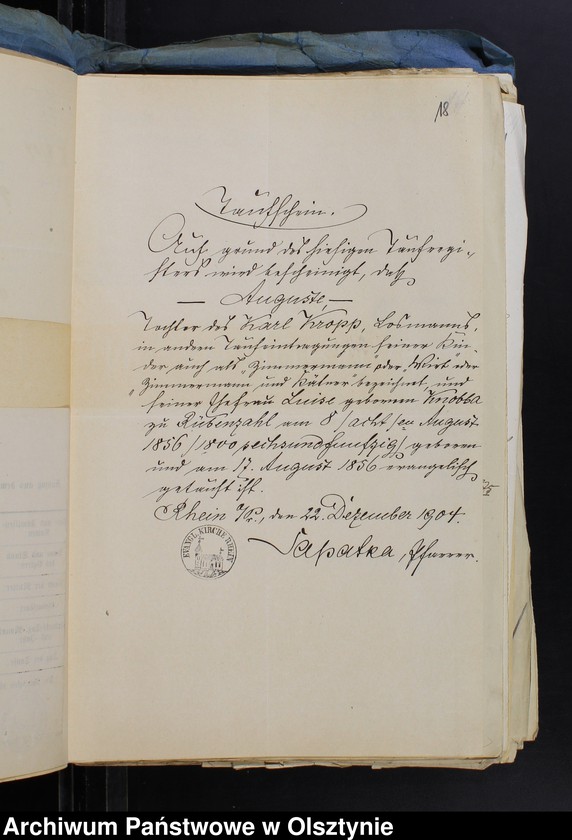 18
Taufschein.
Auf grund des hiesigen Taufregi-
sters wird bescheinigt, daß
— Auguste, —
Tochter des Karl Kropp, Losmanns,
in andern Taufeintragungen seiner Kin-
der auch als "Zimmermann" oder "Wirt" oder
"Zimmermann und Kätner" bezeichnet, und
seiner Ehefrau Luise geborenen Knobba
zu Rübenzahl am 8 /acht/ en August
1856 /1800 sechsundfunfzig/ geboren
und am 17. August 1856 evangelisch
getauft ist.
Rhein O/Pr., den 22. Dezember 1904.
EVANGL. KIRCHE RHEIN
Sapatka, Pfarrer.
Archiwum Państwowe w Olsztynie